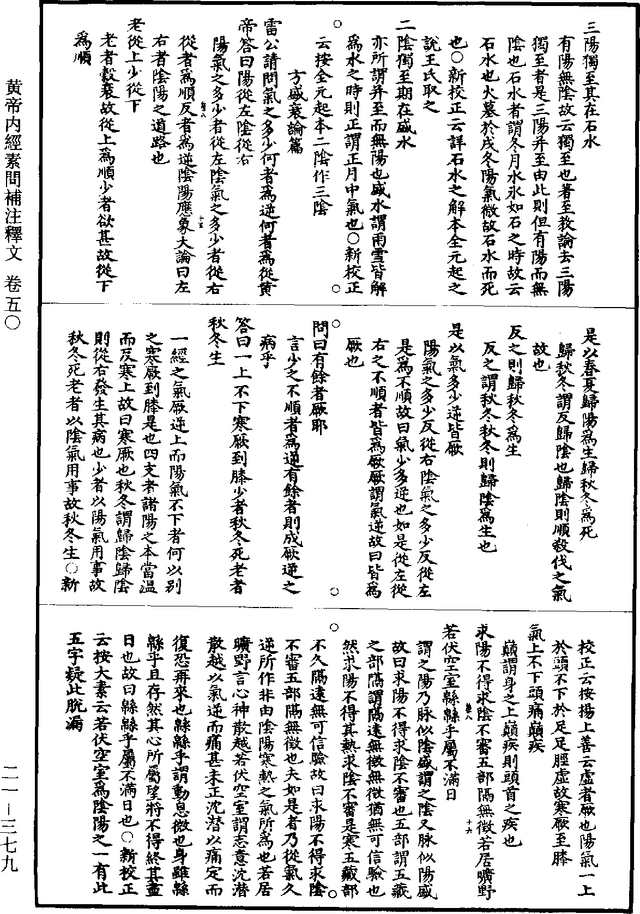 黄帝内經素問補注釋文 卷五〇
三陽獨至其在石水
有陽無陰故云獨至也著至教論去三陽
獨至者是三陽并至由此則但有陽而無
陰也石水者謂冬月水氷如石之時故云
石水也火墓於戌冬陽氣微故石水而死
也〇新校正云詳石水之解本全元起之
說王氏取之
二陰獨至期在盛水
亦所謂并至而無陽也盛水謂雨雪皆解
爲水之時則正謂正月中氣也〇新校正
云按全元起本二陰作三陰
方盛衰論篇
雷公請問氣之多少何者爲逆何者爲從黄
帝答曰陽從左陰從右
陽氣之多少者從左陰氣之多少者從右
從者爲順反者爲逆陰陽應象大論曰左
右者陰陽之道路也
老從上少從下
老者穀衰故從上爲順少者欲甚故從下
爲順
是以春夏歸陽爲生歸秋冬爲死
歸秋冬謂反歸陰也歸陰則順殺伐之氣
故也
反之則歸秋冬爲生
反之謂秋冬秋冬則歸陰爲生也
是以氣多少逆皆厥
陽氣之多少反從右陰氣之多少反從左
是爲不順故曰氣少多逆也如是從左從
右之不順者皆爲厥厥謂氣逆故曰皆爲
厥也
問曰有餘者厥耶
言少之不順者爲逆有餘者則成厥逆之
病乎
答曰一上不下寒厥到膝少者秋冬死老者
秋冬生
一經之氣厥逆上而陽氣不下者何以别
之寒厥到膝是也四支者諸陽之本當温
而反寒上故曰寒厥也秋冬謂歸陰歸陰
則從右發生其病也少者以陽氣用事故
秋冬死老者以陰氣用事故秋冬生〇新
校正云按楊上善云虚者厥也陽氣一上
於頭不下於足足脛虚故寒厥至膝
氣上不下頭痛巔疾
巔謂身之上巔疾則頭首之疾也
求陽不得求陰不審五部隔無徵若居曠野
若伏空室緜緜乎屬不滿日
謂之陽乃脉似陰盛謂之陰又脉似陽盛
故曰求陽不得求陰不審也五部謂五藏
之部隔謂隔遠無徵無徵猶無可信驗也
然求陽不得其熱求陰不審是寒五藏部
不久隔遠無可信驗故曰求陽不得求陰
不審五部隔無徵也夫如是者乃從氣久
逆所作非由陰陽寒熱之氣所爲也若居
曠野言心神散越若伏空室謂志意沈潜
散越以氣逆而痛甚未正沈潜以痛定而
復恐再來也緜緜乎謂動息微也身雖緜
緜乎且存然其心所屬望將不得終其盡
日也故曰緜緜乎屬不滿日也〇新校正
云按大素云若伏空室爲陰陽之一有此
五字疑此脱漏
二一—三七九